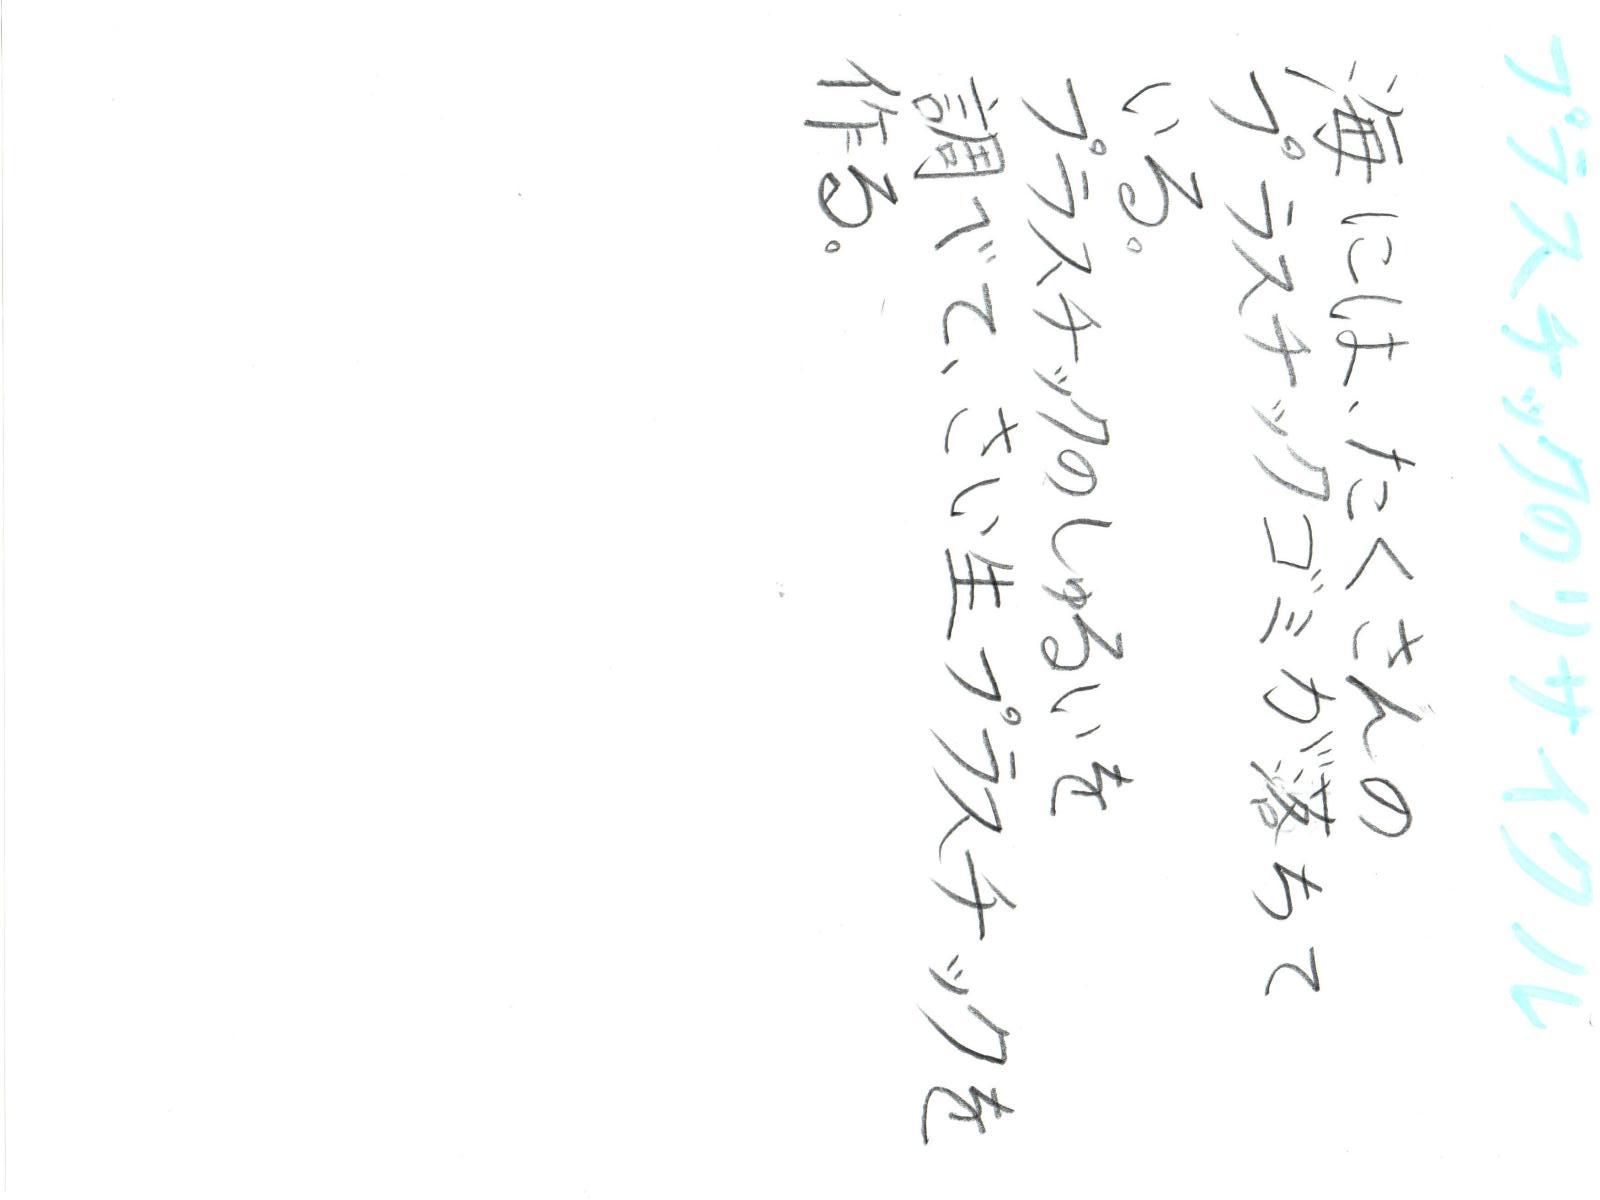 プラスチックのリサイクル
海には、たくさんの
プラスチックゴミが落ちて
いる。
プラスチックのしゅるいを
調べて、さい生プラスチックを
作る。